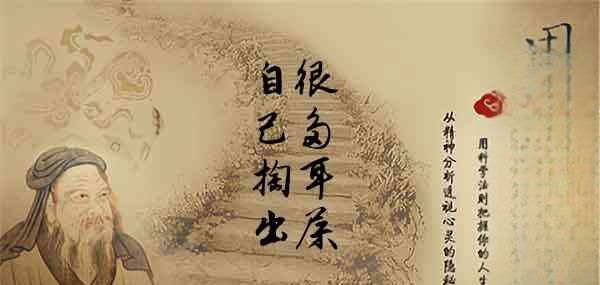 用科学法则把握你的人生
从精神分析透视心灵的隐秘
很多耳屎
自己掏出